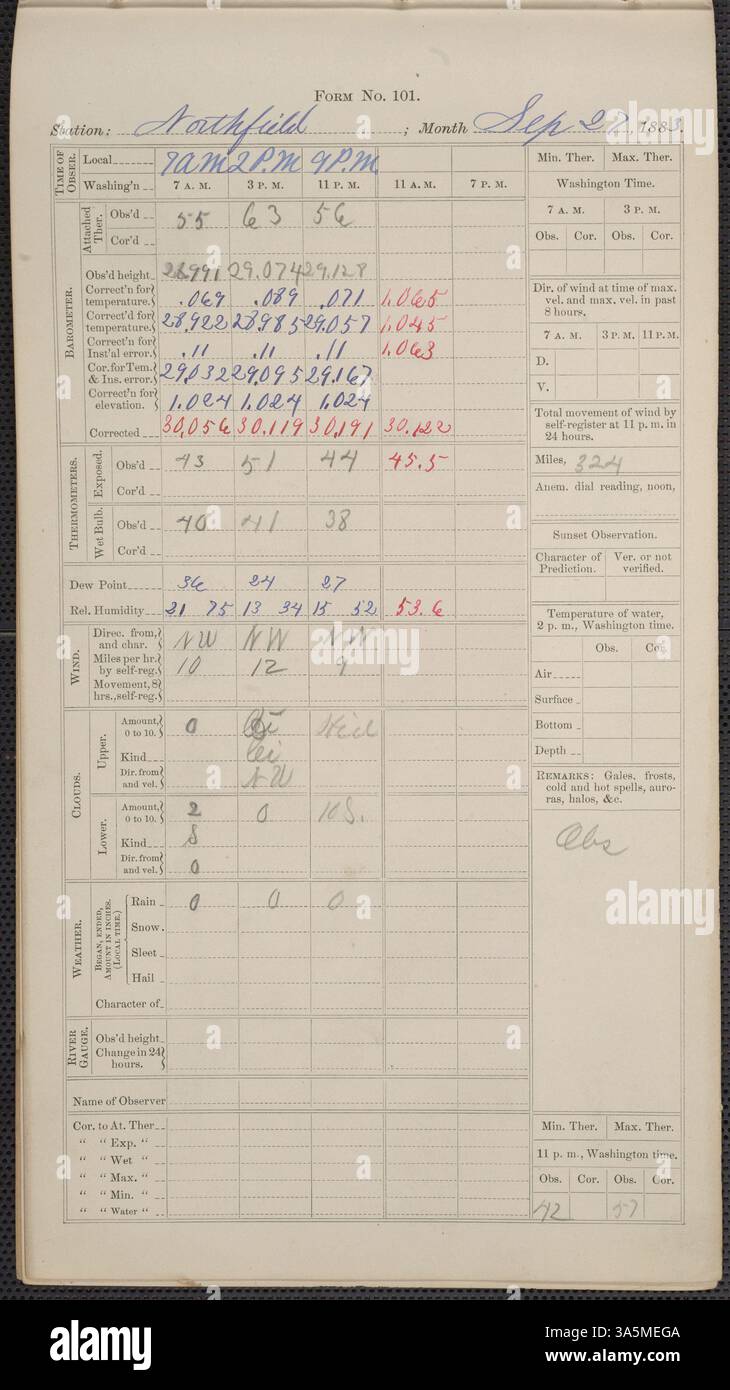 FORM No. 101.
Station: Northfield ; Month Sep 27, 1883.
TIME OF OBSER.
Local 7 A M 2 P.M 9 P.M
Washing'n 7 A. M. 3 P. M. 11 P. M. 11 A. M. 7 P. M.
BAROMETER.
Attached Ther.
Obs'd 55 63 56
Cor'd
Obs'd height 28.991 29.074 29.128
Correct'n for temperature. .069 .089 .071 1.065
Correct'd for temperature. 28.922 28.985 29.057 1.045
Correct'n for Inst'al error. .11 .11 .11 1.063
Cor. for Tem. & Ins. error. 29.032 29.095 29.167
Correct'n for elevation. 1.024 1.024 1.024
Corrected 30.056 30.119 30.191 30.122
THERMOMETERS.
Exposed.
Obs'd 43 51 44 45.5
Cor'd
Wet Bulb.
Obs'd 40 41 38
Cor'd
Dew Point 36 24 27
Rel. Humidity 21 75 13 34 15 52 53.6
WIND.
Direc. from, and char. NW NW NW
Miles per hr. by self-reg. 10 12 9
Movement, 8 hrs., self-reg.
CLOUDS.
Upper.
Amount, 0 to 10. 0
Kind Ci
Dir. from and vel. NW
Lower.
Amount, 0 to 10. 2 0 10 S.
Kind S
Dir. from and vel. 0
WEATHER.
BEGAN, ENDED, AMOUNT IN INCHES. (LOCAL TIME.)
Rain 0 0 0
Snow.
Sleet
Hail
Character of
RIVER GAUGE.
Obs'd height
Change in 24 hours.
Name of Observer
Cor. to At. Ther
" " Exp. "
" " Wet "
" " Max. "
" " Min. "
" " Water "
Min. Ther. Max. Ther.
Washington Time.
7 A. M. 3 P. M.
Obs. Cor. Obs. Cor.
Dir. of wind at time of max. vel. and max. vel. in past 8 hours.
7 A. M. 3 P. M. 11 P. M.
D.
V.
Total movement of wind by self-register at 11 p. m. in 24 hours.
Miles, 324
Anem. dial reading, noon,
Sunset Observation.
Character of Prediction. Ver. or not verified.
Temperature of water, 2 p. m., Washington time.
Obs. Cor.
Air
Surface
Bottom
Depth
REMARKS: Gales, frosts, cold and hot spells, auroras, halos, &c.
Obs
Min. Ther. Max. Ther.
11 p. m., Washington time.
Obs. Cor. Obs. Cor.
42 57
alamy
Image ID: 3A5MEGA
www.alamy.com